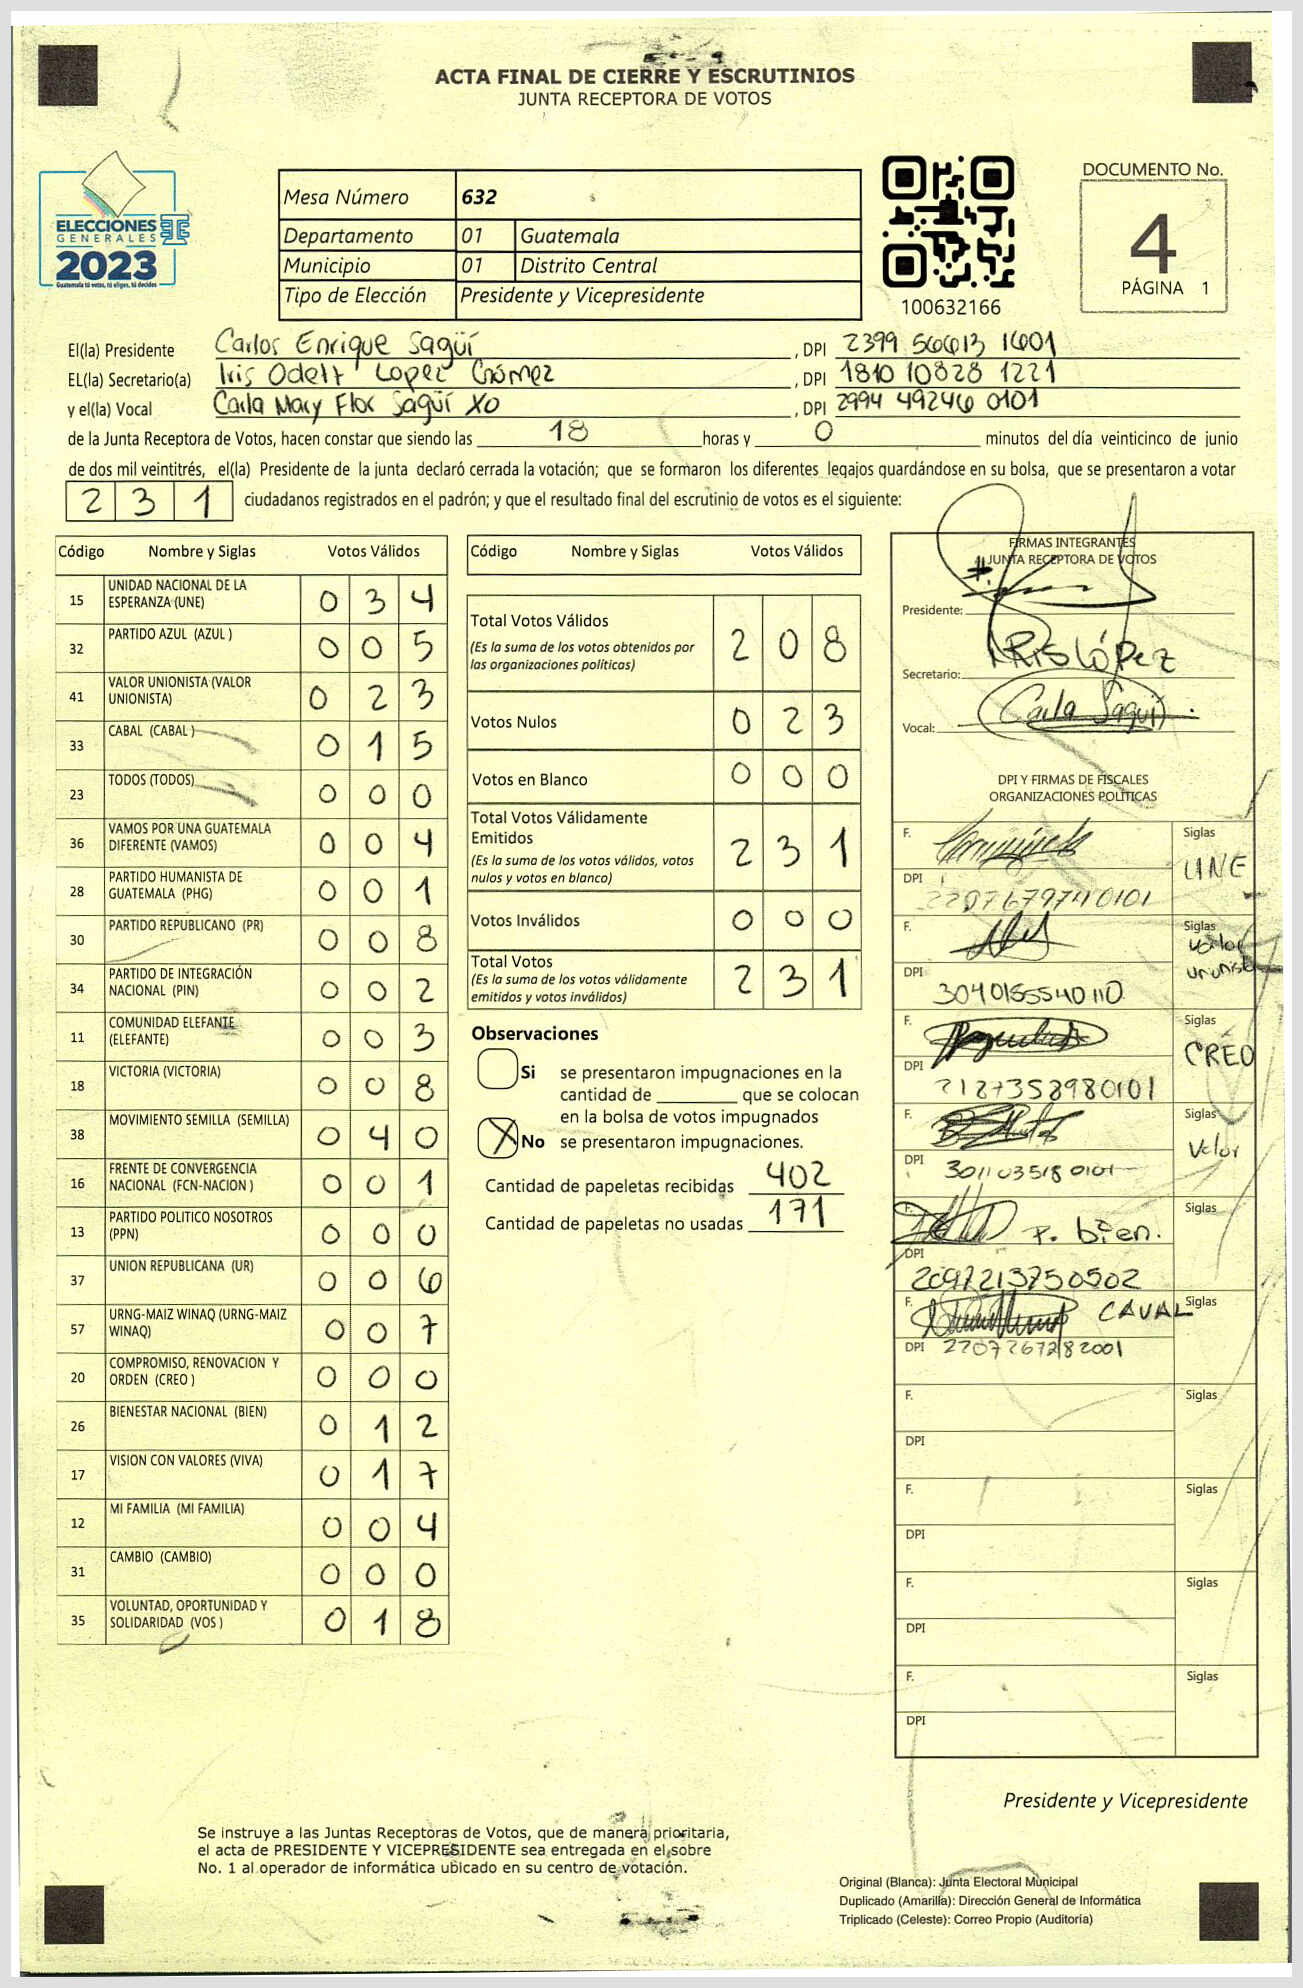 ACTA FINAL DE CIERRE Y ESCRUTINIOS
JUNTA RECEPTORA DE VOTOS
ELECCIONES
GENERALES
2023
Guatemala tú votas, tú eliges, tú decides
Mesa Número 632
Departamento 01 Guatemala
Municipio 01 Distrito Central
Tipo de Elección Presidente y Vicepresidente
100632166
DOCUMENTO No.
4
PÁGINA 1
El(la) Presidente Carlos Enrique Sagüí, DPI 2399 56613 1601
EL(la) Secretario(a) Iris Odett Lopez Gómez, DPI 1810 10828 1221
y el(la) Vocal Carla Mary Flor Sagüí XO, DPI 2994 49246 0101
de la Junta Receptora de Votos, hacen constar que siendo las 18 horas y 0 minutos del día veinticinco de junio
de dos mil veintitrés, el(la) Presidente de la junta declaró cerrada la votación; que se formaron los diferentes legajos guardándose en su bolsa, que se presentaron a votar
231 ciudadanos registrados en el padrón; y que el resultado final del escrutinio de votos es el siguiente:
Código Nombre y Siglas Votos Válidos
15 UNIDAD NACIONAL DE LA ESPERANZA (UNE) 0 3 4
32 PARTIDO AZUL (AZUL ) 0 0 5
41 VALOR UNIONISTA (VALOR UNIONISTA) 0 2 3
33 CABAL (CABAL ) 0 1 5
23 TODOS (TODOS) 0 0 0
36 VAMOS POR UNA GUATEMALA DIFERENTE (VAMOS) 0 0 4
28 PARTIDO HUMANISTA DE GUATEMALA (PHG) 0 0 1
30 PARTIDO REPUBLICANO (PR) 0 0 8
34 PARTIDO DE INTEGRACIÓN NACIONAL (PIN) 0 0 2
11 COMUNIDAD ELEFANTE (ELEFANTE) 0 0 3
18 VICTORIA (VICTORIA) 0 0 8
38 MOVIMIENTO SEMILLA (SEMILLA) 0 4 0
16 FRENTE DE CONVERGENCIA NACIONAL (FCN-NACION ) 0 0 1
13 PARTIDO POLITICO NOSOTROS (PPN) 0 0 0
37 UNION REPUBLICANA (UR) 0 0 6
57 URNG-MAIZ WINAQ (URNG-MAIZ WINAQ) 0 0 7
20 COMPROMISO, RENOVACION Y ORDEN (CREO ) 0 0 0
26 BIENESTAR NACIONAL (BIEN) 0 1 2
17 VISION CON VALORES (VIVA) 0 1 7
12 MI FAMILIA (MI FAMILIA) 0 0 4
31 CAMBIO (CAMBIO) 0 0 0
35 VOLUNTAD, OPORTUNIDAD Y SOLIDARIDAD (VOS ) 0 1 8
Código Nombre y Siglas Votos Válidos
Total Votos Válidos 2 0 8
(Es la suma de los votos obtenidos por
las organizaciones políticas)
Votos Nulos 0 2 3
Votos en Blanco 0 0 0
Total Votos Válidamente
Emitidos 2 3 1
(Es la suma de los votos válidos, votos
nulos y votos en blanco)
Votos Inválidos 0 0 0
Total Votos 2 3 1
(Es la suma de los votos válidamente
emitidos y votos inválidos)
Observaciones
Si se presentaron impugnaciones en la
cantidad de ________ que se colocan
en la bolsa de votos impugnados
X No se presentaron impugnaciones.
Cantidad de papeletas recibidas 402
Cantidad de papeletas no usadas 171
FIRMAS INTEGRANTES
JUNTA RECEPTORA DE VOTOS
Presidente:
Secretario: IRIS LÓPez
Vocal: Carla Sagüí
DPI Y FIRMAS DE FISCALES
ORGANIZACIONES POLÍTICAS
F. Siglas UNE
DPI 2207679740101
F. Siglas Valor unionista
DPI 3040155540110
F. Siglas CREO
DPI 2127358980101
F. Siglas Valor
DPI 3011035180101
F. P. bien. Siglas
DPI 2097213750502
F. CAVAL Siglas
DPI 2207267282001
F. Siglas
DPI
F. Siglas
DPI
F. Siglas
DPI
F. Siglas
DPI
Presidente y Vicepresidente
Se instruye a las Juntas Receptoras de Votos, que de manera prioritaria,
el acta de PRESIDENTE Y VICEPRESIDENTE sea entregada en el sobre
No. 1 al operador de informática ubicado en su centro de votación.
Original (Blanca): Junta Electoral Municipal
Duplicado (Amarilla): Dirección General de Informática
Triplicado (Celeste): Correo Propio (Auditoría)